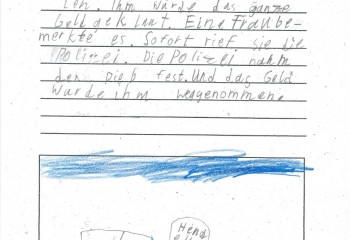 ihm würde das ganze
Geld geklaut. Eine Frau be-
merkte es. Sofort rief sie die
Polizei. Die Polizei nahm
den Dieb fest. Und das Geld
wurde ihm weggenommen.